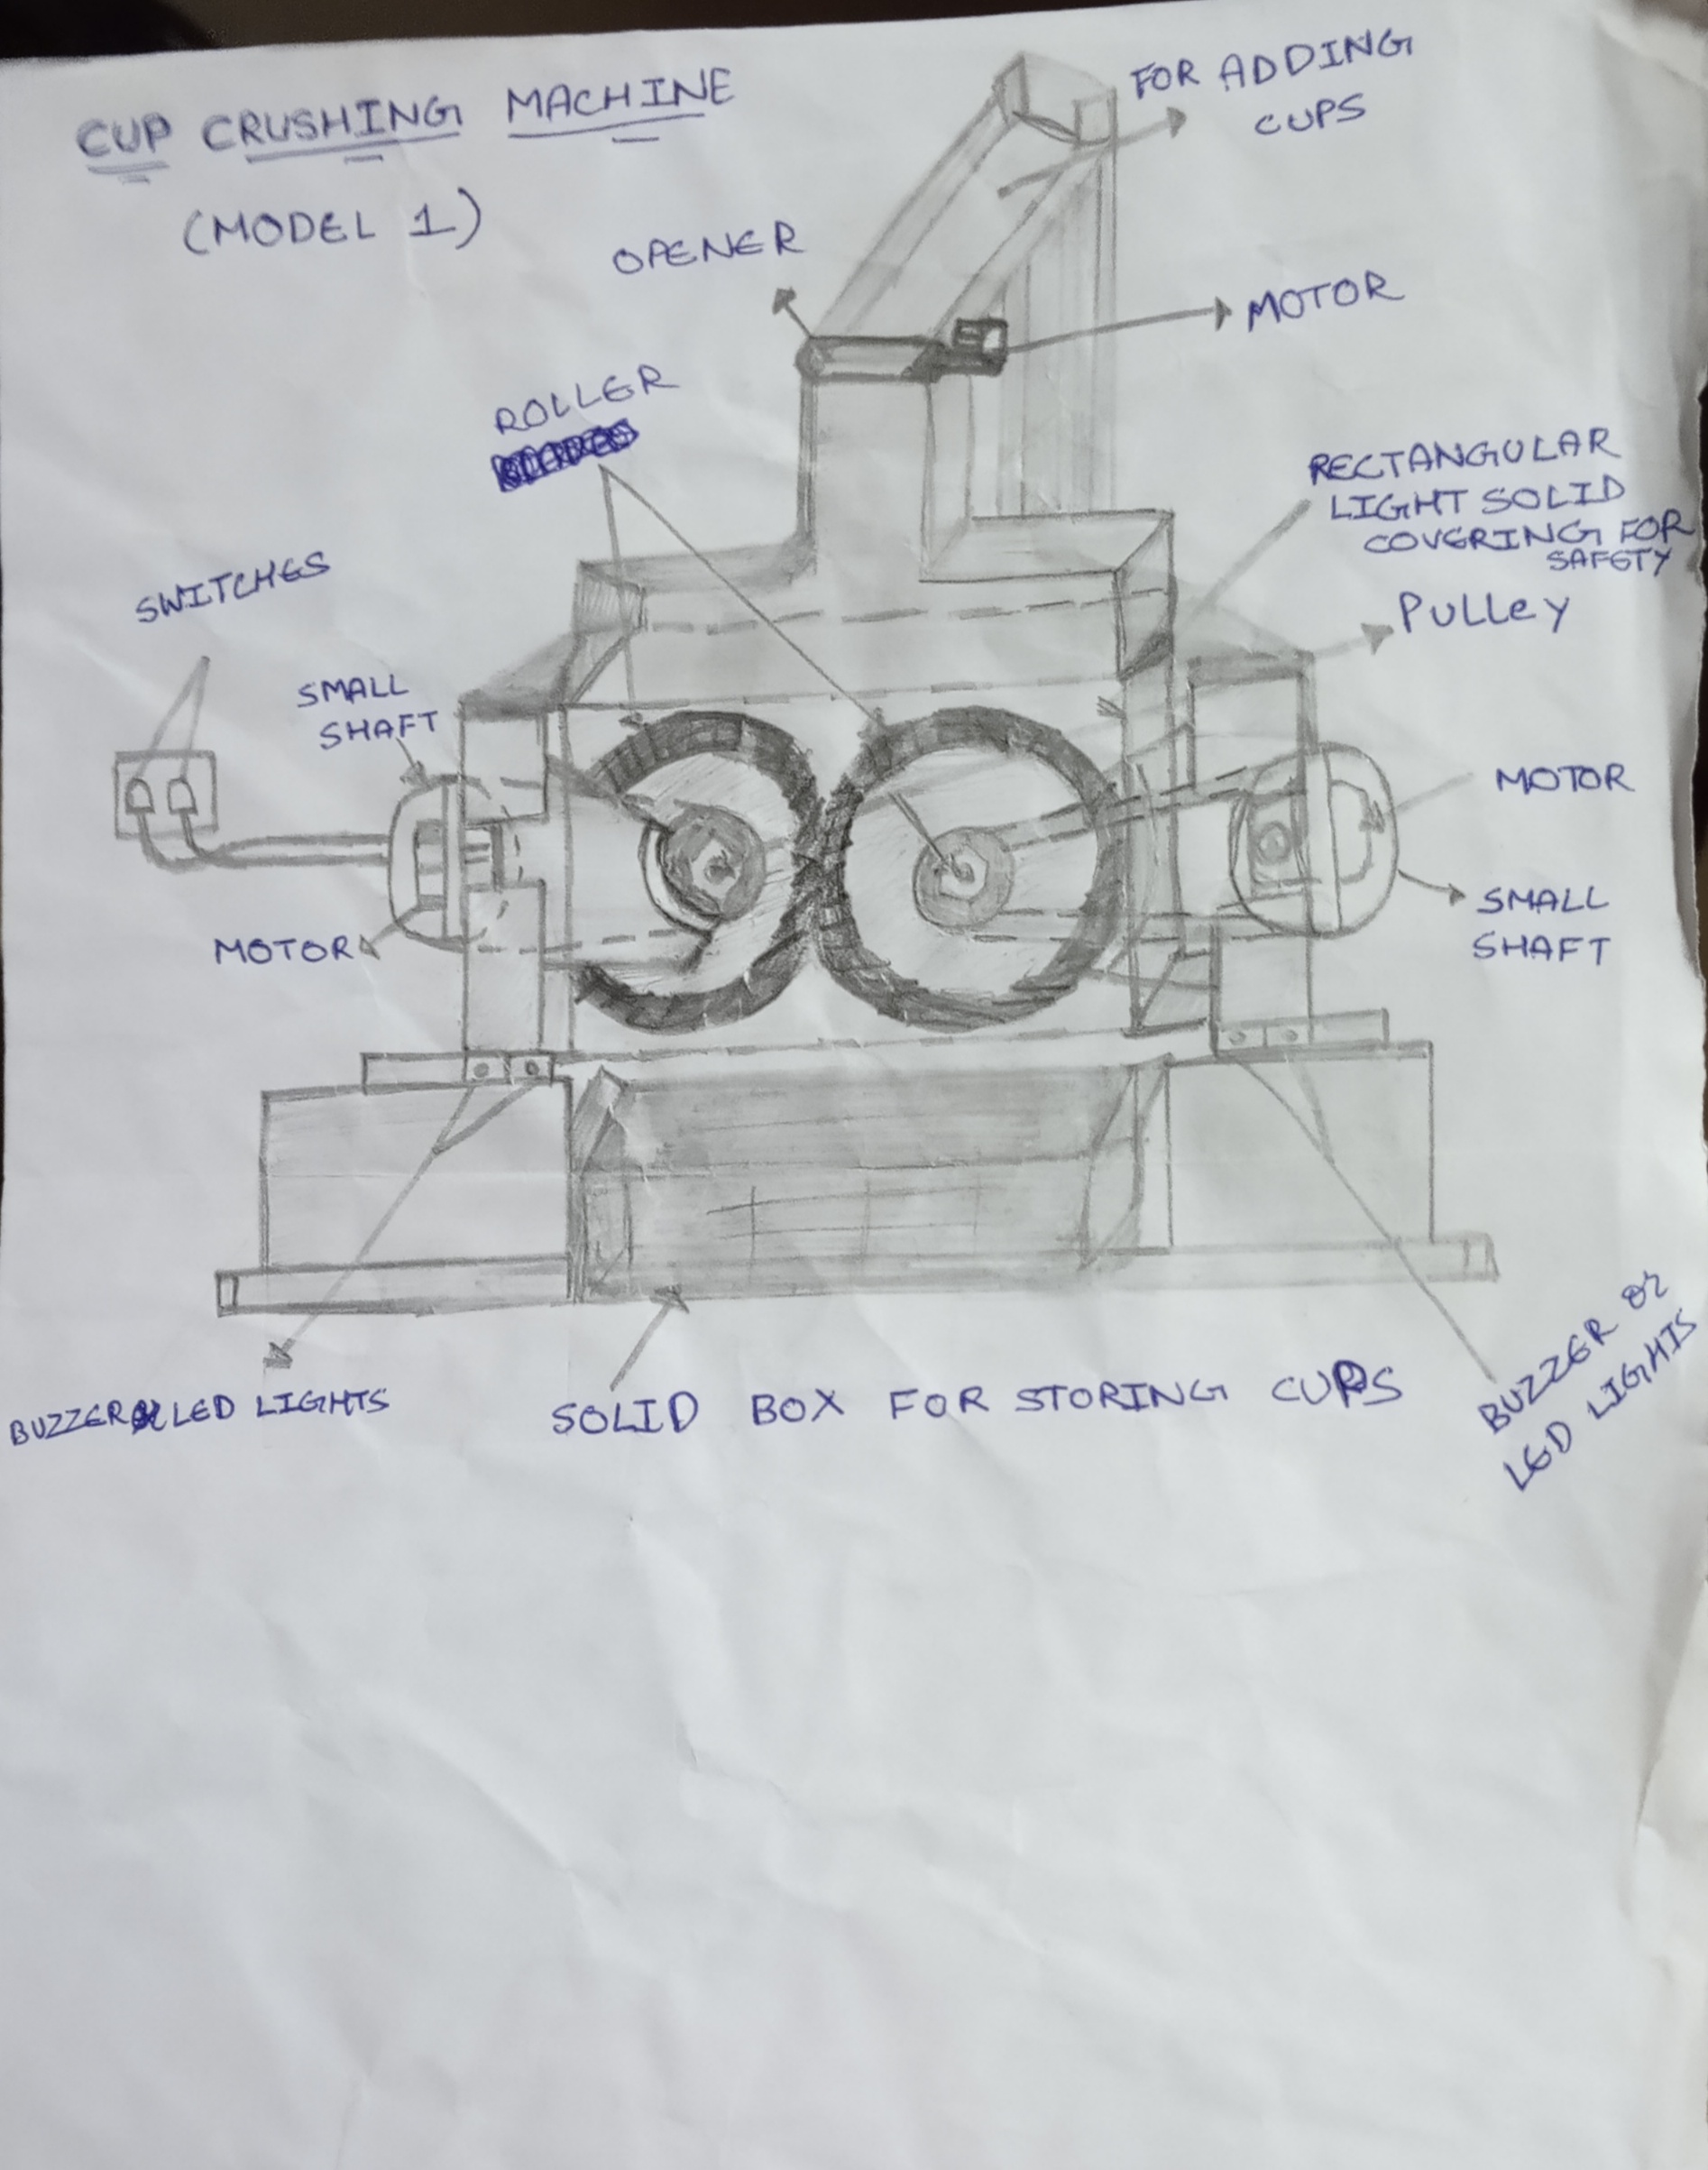 CUP CRUSHING MACHINE
(MODEL 1)
FOR ADDING
CUPS
OPENER
MOTOR
ROLLER
RECTANGULAR
LIGHT SOLID
COVERING FOR
SAFETY
SWITCHES
PULLEY
SMALL
SHAFT
MOTOR
MOTOR
SMALL
SHAFT
BUZZER LED LIGHTS
SOLID BOX FOR STORING CUPS
BUZZER or
LED LIGHTS